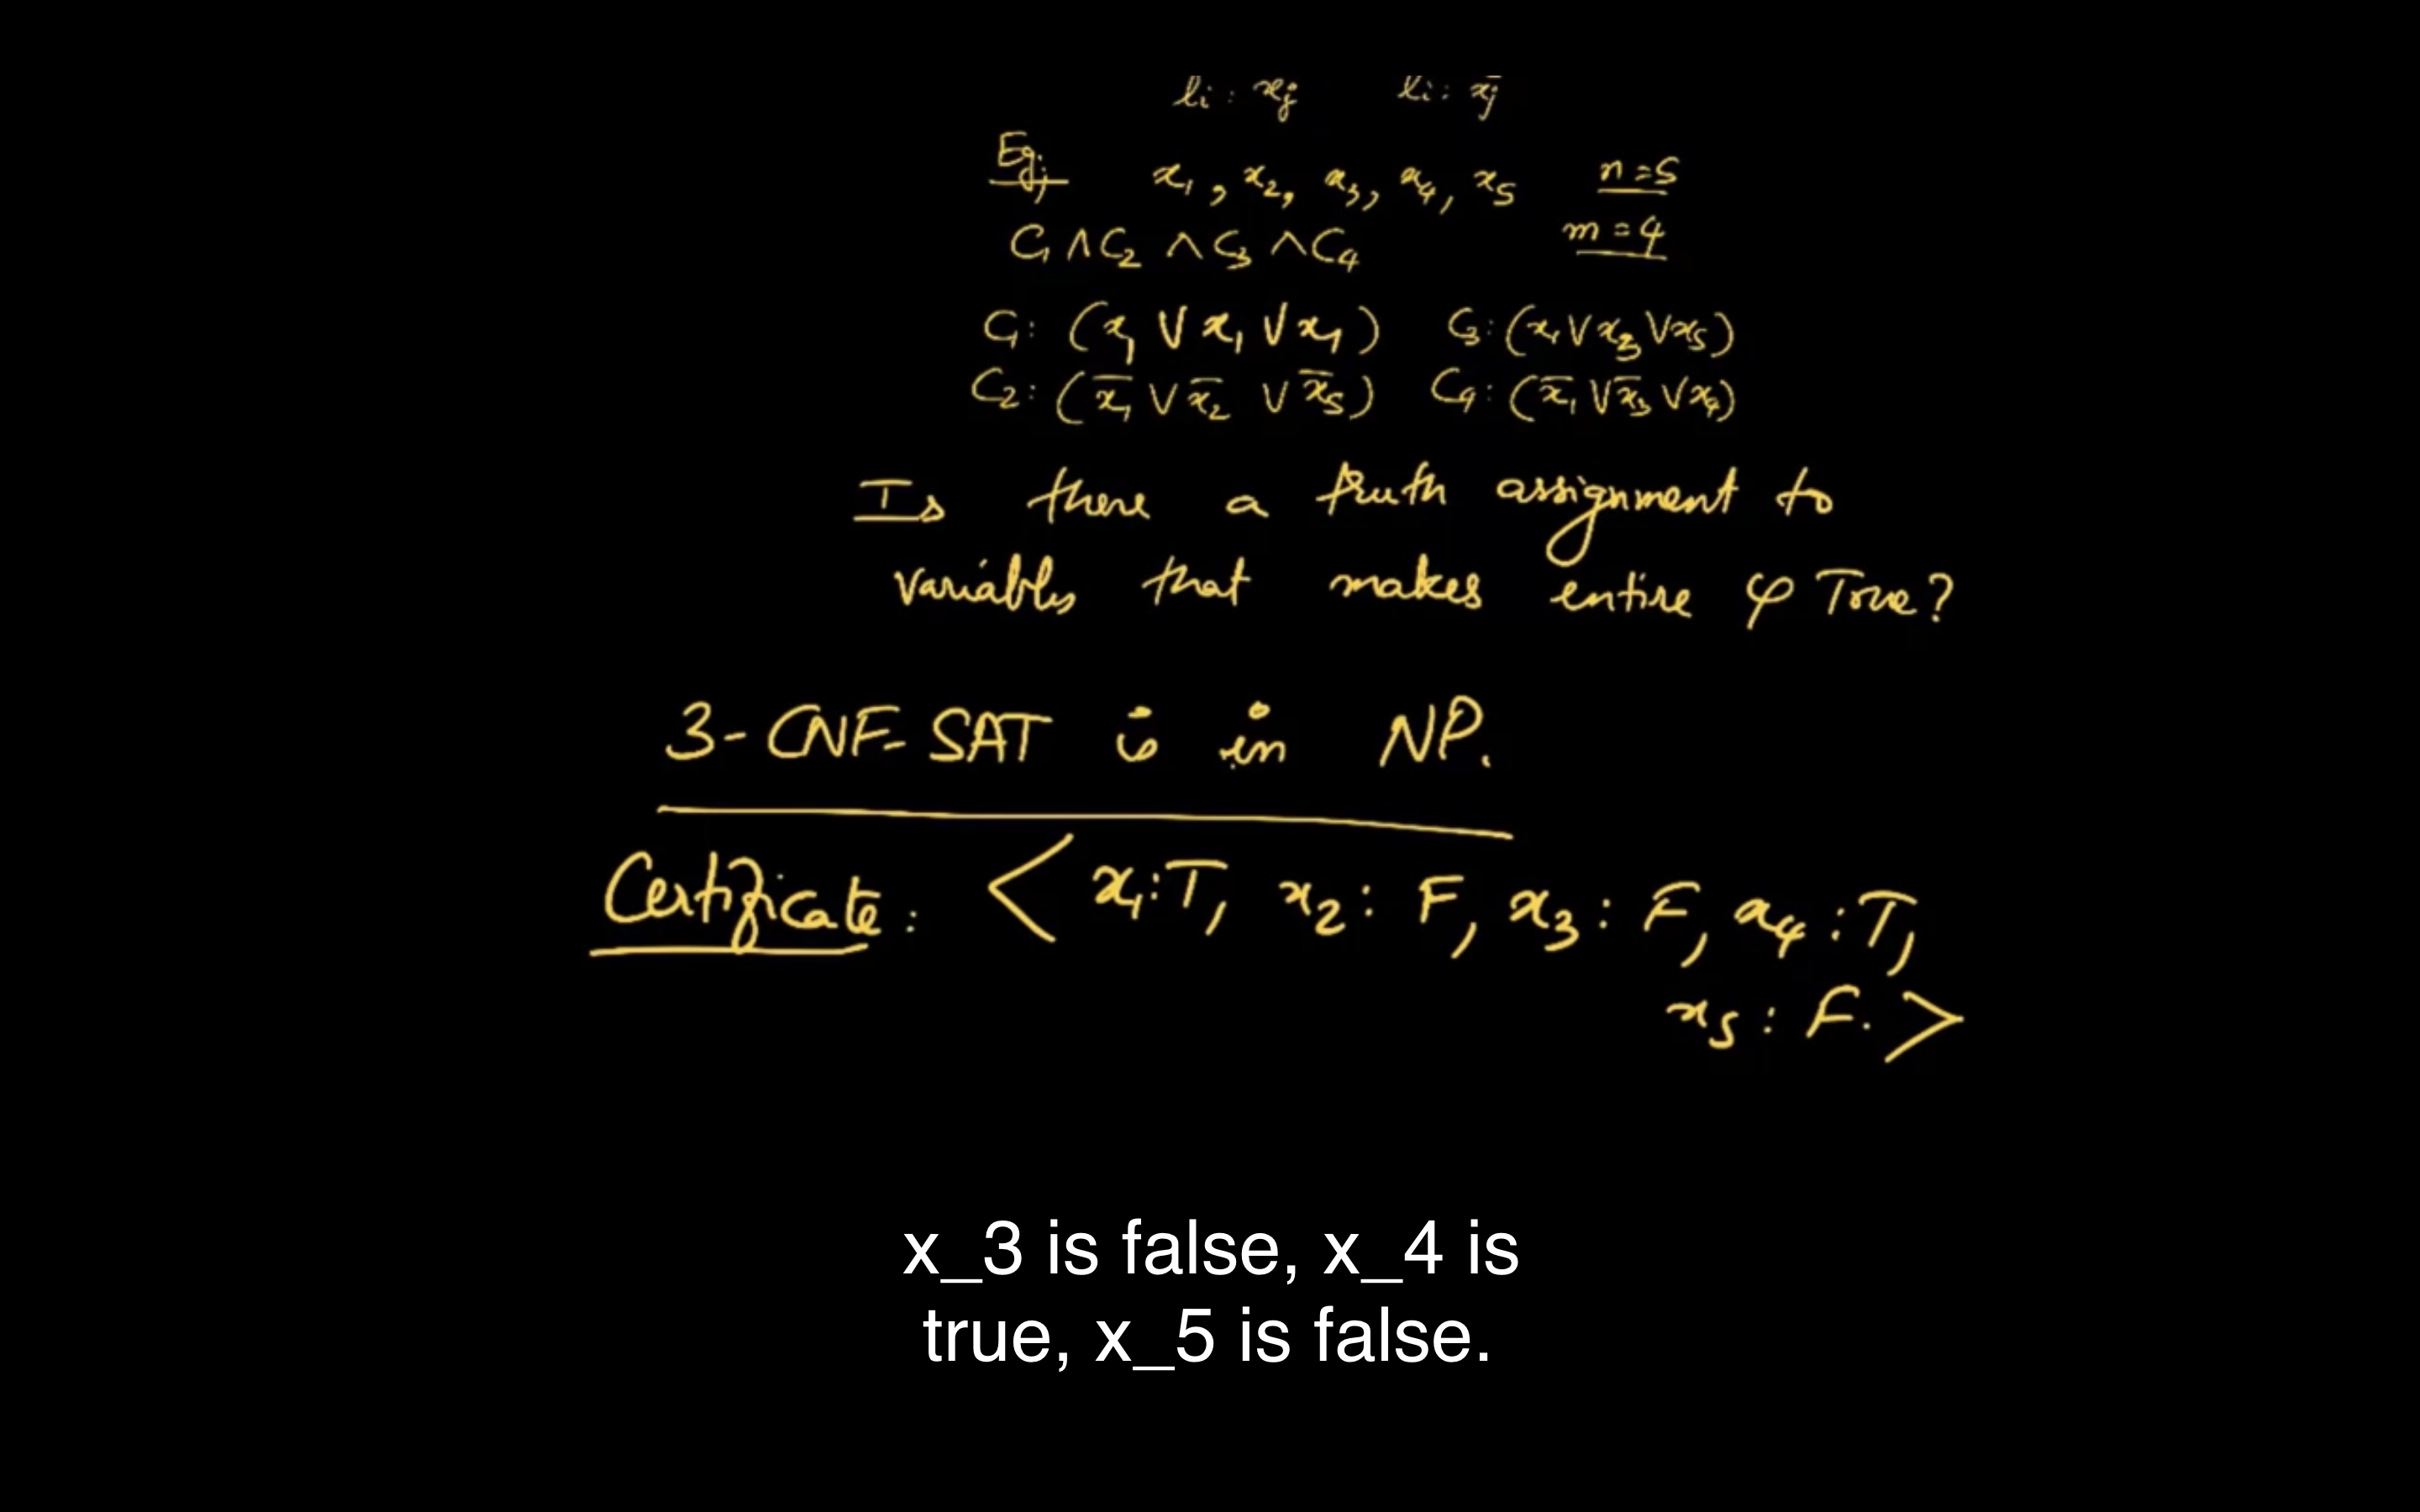 li : xj li : x̄j
Eg; x₁, x₂, x₃, x₄, x₅ n=5
C₁ ∧ C₂ ∧ C₃ ∧ C₄ m=4
C₁: (x₁ ∨ x₁ ∨ x₁) C₃: (x₁ ∨ x₃ ∨ x₅)
C₂: (x̄₁ ∨ x̄₂ ∨ x̄₅) C₄: (x̄₁ ∨ x̄₃ ∨ x₄)
Is there a truth assignment to
variables that makes entire φ True?
3-CNF-SAT is in NP.
Certificate: < x₁:T, x₂: F, x₃: F, x₄:T,
x₅: F. >
x_3 is false, x_4 is
true, x_5 is false.